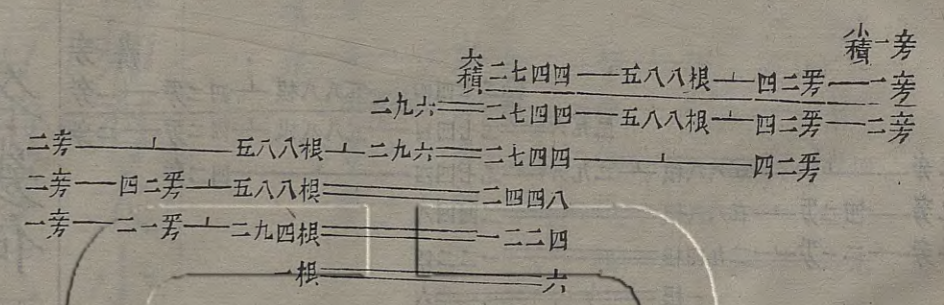 小積一立方
大積二七四四—五八八根⊥四二平方—一立方
二九六=二七四四—五八八根⊥四二平方—二立方
二立方—⊥—五八八根⊥二九六=二七四四—⊥—四二平方
二立方—四二平方⊥五八八根=二四四八
一立方—二一平方⊥二九四根=一二二四
一根=六